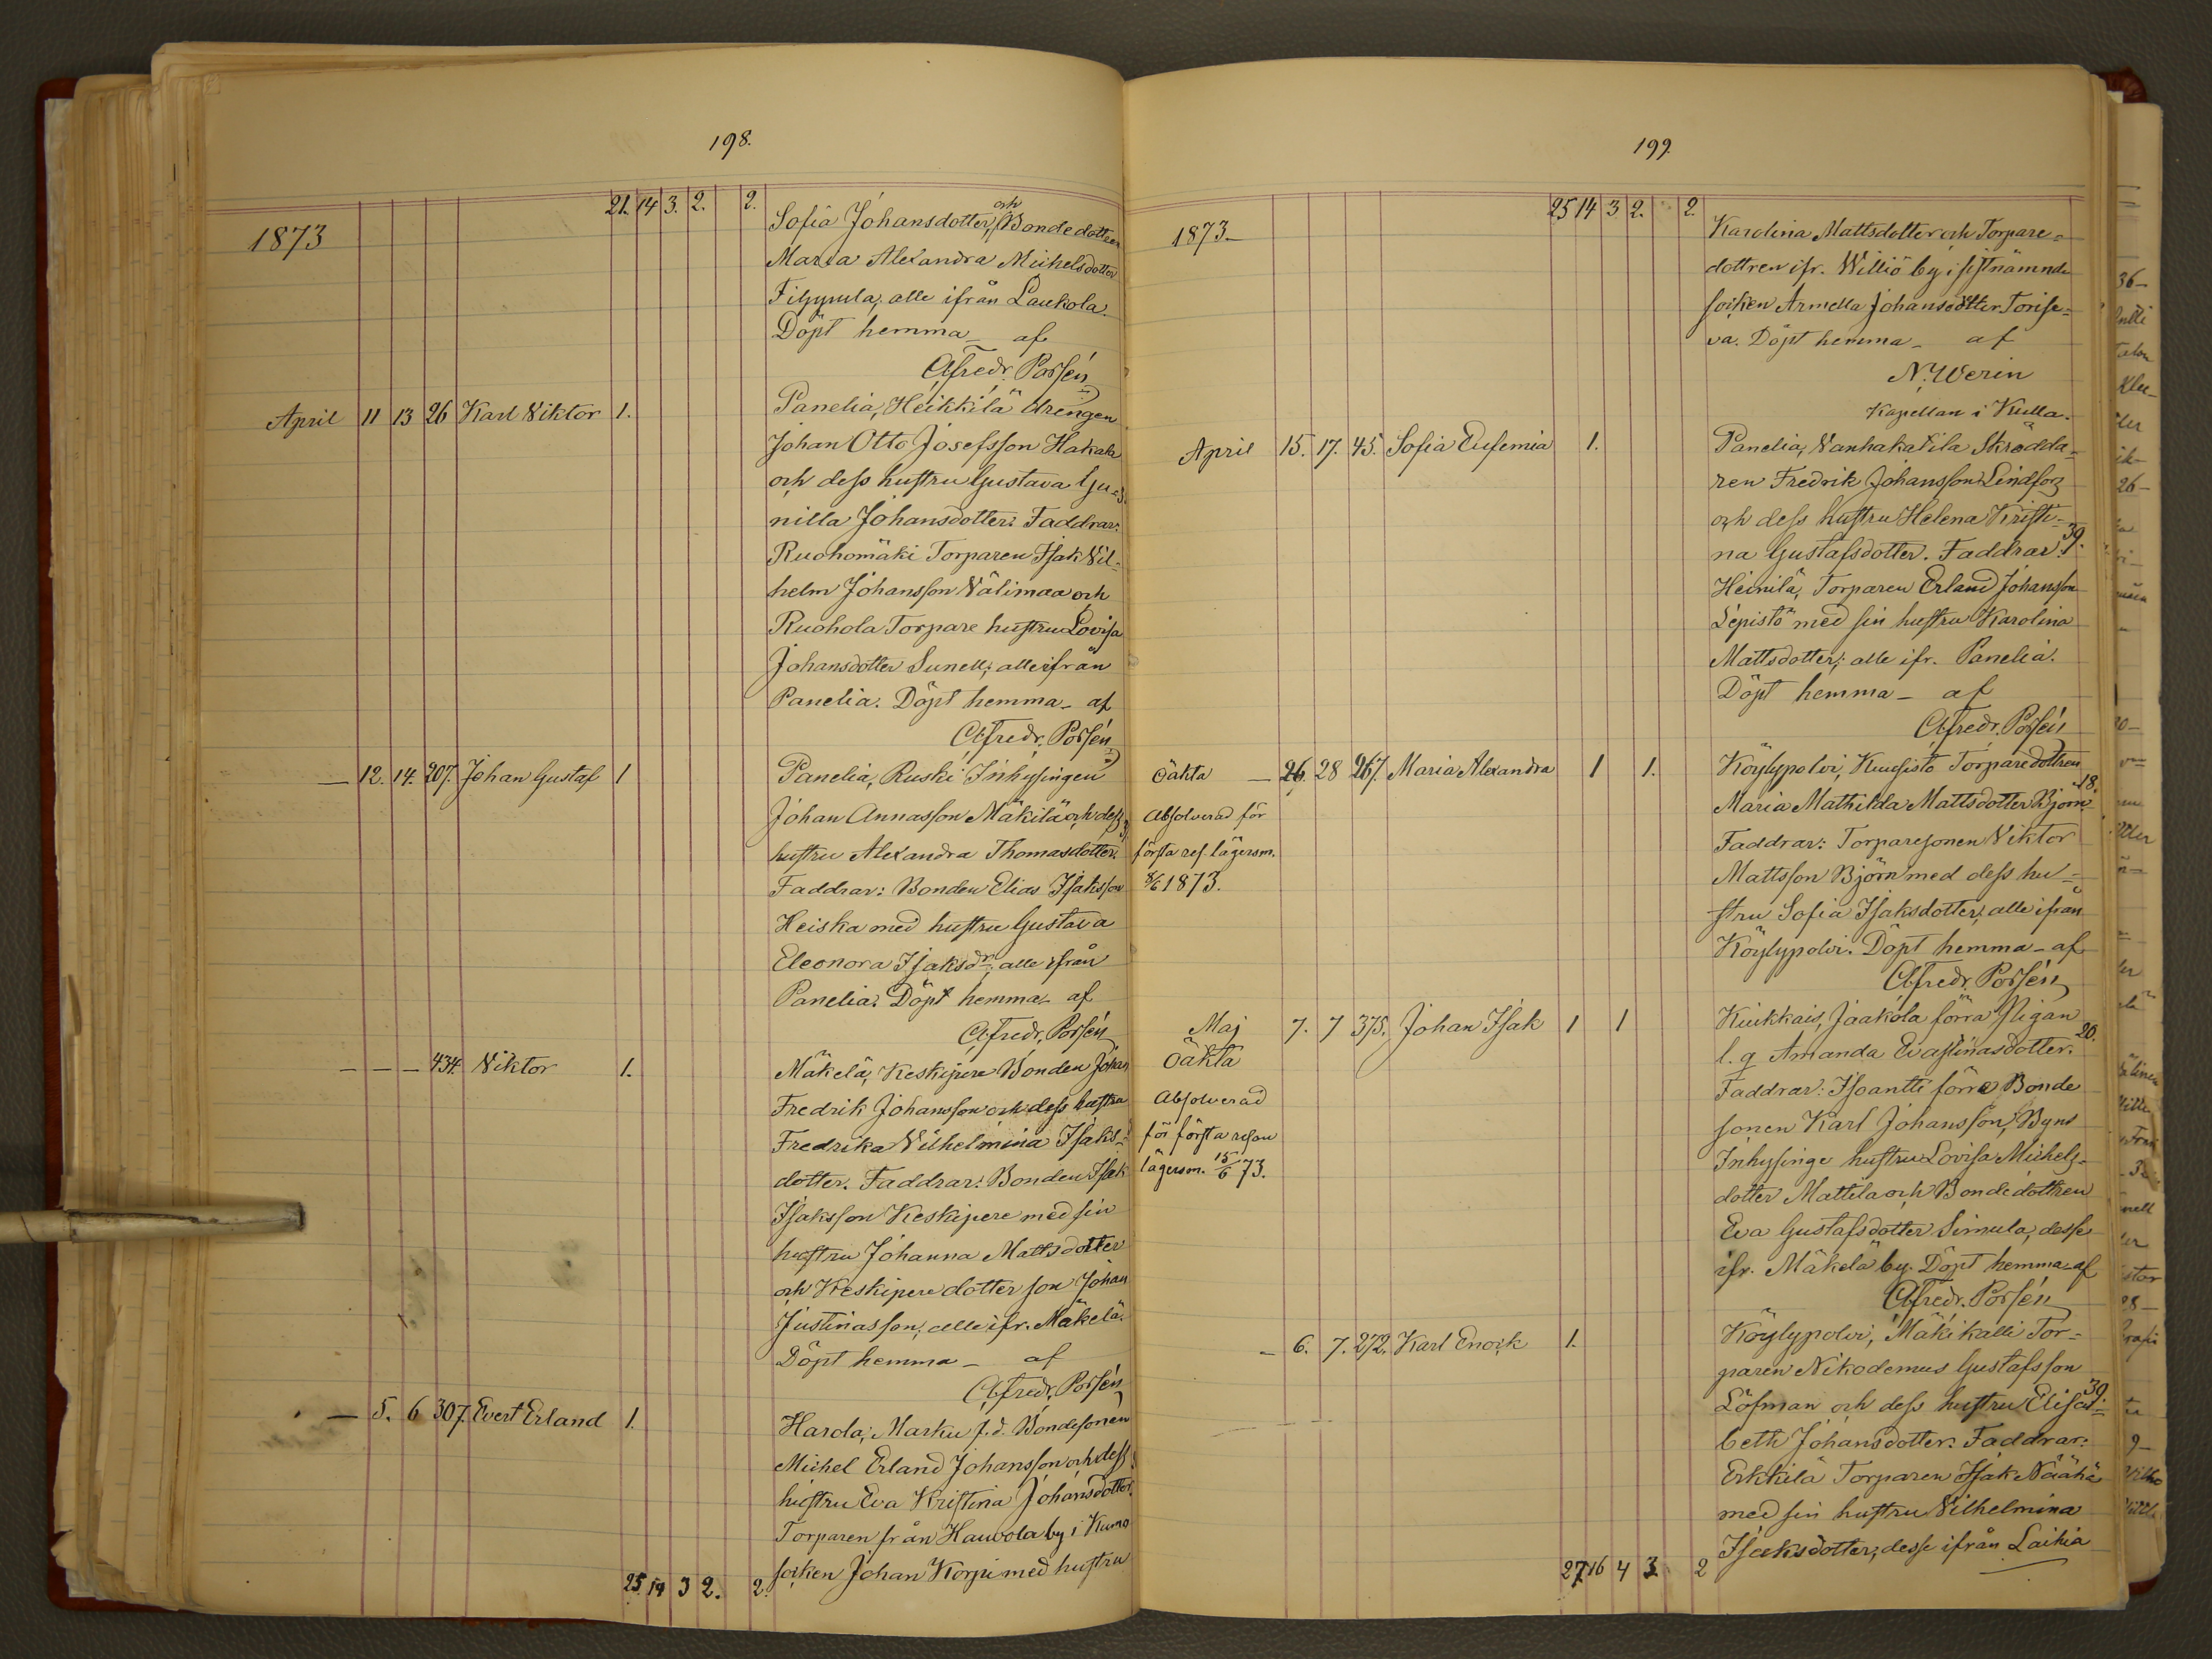 198.
21. 14 3. 2. 2.
1873
Sofia Johansdotter, och Bondedottren
Maria Alexandra Michelsdotter
Filppula, alle ifrån Laukola.
Döpt hemma _ af
Afredr. Porsén
April 11 13 26 Karl Viktor 1. Panelia, Heikkilä Drengen
Johan Otto Josefsson Hakala
och dess hustru Gustava Gu-
nilla Johansdotter. Faddrar:
Ruohomäki Torparen Isak Vil-
helm Johansson Välimaa och
Ruohola Torpare hustru Lovisa
Johansdotter Sunell; alle ifrån
Panelia. Döpt hemma _ af
Afredr. Porsén
— 12. 14. 207. Johan Gustaf 1 Panelia, Ruski Inhysingen
Johan Annasson Mäkilä och dess
hustru Alexandra Thomasdotter.
Faddrar: Bonden Elias Isaksson
Heiska med hustru Gustava
Eleonora Isaksdr; alle ifrån
Panelia. Döpt hemma _ af
Afredr. Porsén
— — — 434. Viktor 1. Mäkelä, Keskipere Bonden Johan
Fredrik Johansson och dess hustru
Fredrika Vilhelmina Isaks-
dotter. Faddrar: Bonden Isak
Isaksson Keskipere med sin
hustru Johanna Mattsdotter
och Keskipere dotter son Johan
Justinasson; alle ifr. Mäkelä.
Döpt hemma _ af
Afredr. Porsén
— 5. 6 307. Evert Erland 1. Harola, Marku f.d. Bondesonen
Michel Erland Johansson och dess
hustru Eva Kristina Johansdotter.
Torparen från Hauvola by i Kumo
socken Johan Korpi med hustru
25. 14 3 2. 2.
199.
25 14 3 2. 2.
1873_
Karolina Mattsdotter och Torpare=
dottren ifr. Williö by i sistnämnde
socken Armella Johansdotter Torise=
va. Döpt hemma _ af
N. Werin
Kapellan i Kulla.
April 15. 17. 45. Sofia Eufemia 1. Panelia, Vanhakatila Skrädda-
ren Fredrik Johansson Lindfors
och dess hustru Helena Kristi-
na Gustafsdotter. Faddrar: 39.
Heinilä, Torparen Erland Johansson
Lepistö med sin hustru Karolina
Mattsdotter; alle ifr. Panelia.
Döpt hemma _ af
Afredr. Porsén
Oäkta — 26. 28 267. Maria Alexandra 1 1. Köylypolvi, Kuusisto Torparedottren
18.
Absolverad för Maria Mathilda Mattsdotter Björn
första res. lägersm. Faddrar: Torparesonen Viktor
8/6 1873. Mattsson Björn med dess hu=
stru Sofia Isaksdotter, alle ifrån
Köylypolvi. Döpt hemma _ af
Afredr. Porsén
Maj 7. 7 375. Johan Isak 1 1 Kiukkais, Jaakola förra Pigan
20.
Oäkta l. q Amanda Evastinasdotter.
Absolverad Faddrar: Isoantti förre Bonde
för första resan sonen Karl Johansson, Byns
lägersm. 15/6 73. Inhysinge hustru Lovisa Michels-
dotter Mattila och Bondedottren
Eva Gustafsdotter Simula, desse
ifr. Mäkelä by. Döpt hemma _ af
Afredr. Porsén
— 6. 7. 272. Karl Enock 1. Köylypolvi, Mäkikalli Tor-
paren Nikodemus Gustafsson
Löfman och dess hustru Elisa= 39.
beth Johansdotter. Faddrar:
Erkkilä Torparen Isak Näähä
med sin hustru Vilhelmina
Isaksdotter, desse ifrån Laihia
27. 16 4 3. 2